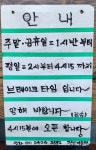 안 내
주말·공휴일 = 1시반 부터
평일 = 2시부터 4시15까지
브레이크 타임 입니다
양해 바랍니다
4시15분에 오픈 합니다